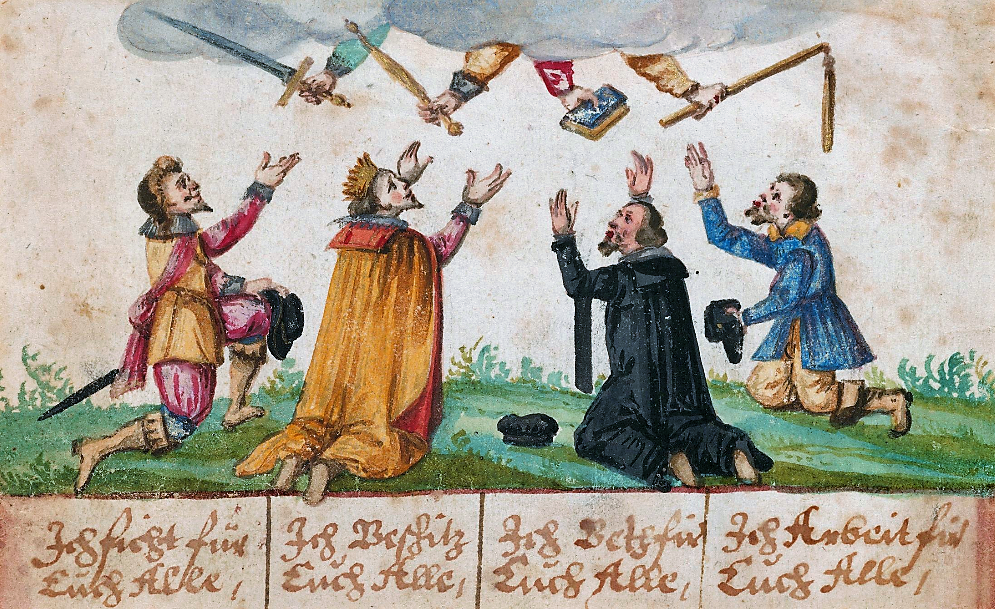 Ich ficht für
Euch Alle,
Ich Beschitz
Euch Alle,
Ich Beth für
Euch Alle,
Ich Arbeit für
Euch Alle,